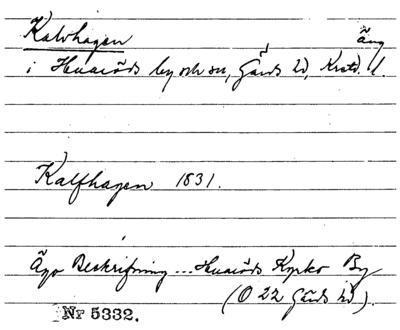 Kalvhagen äng
i Huaröds by och sn, Gärds hd, Krstd. l.
Kalfhagen 1831.
Ägo Beskrifning ... Huaröds Kyrko By
(O 22 Gärds hd).
Nr 5332.